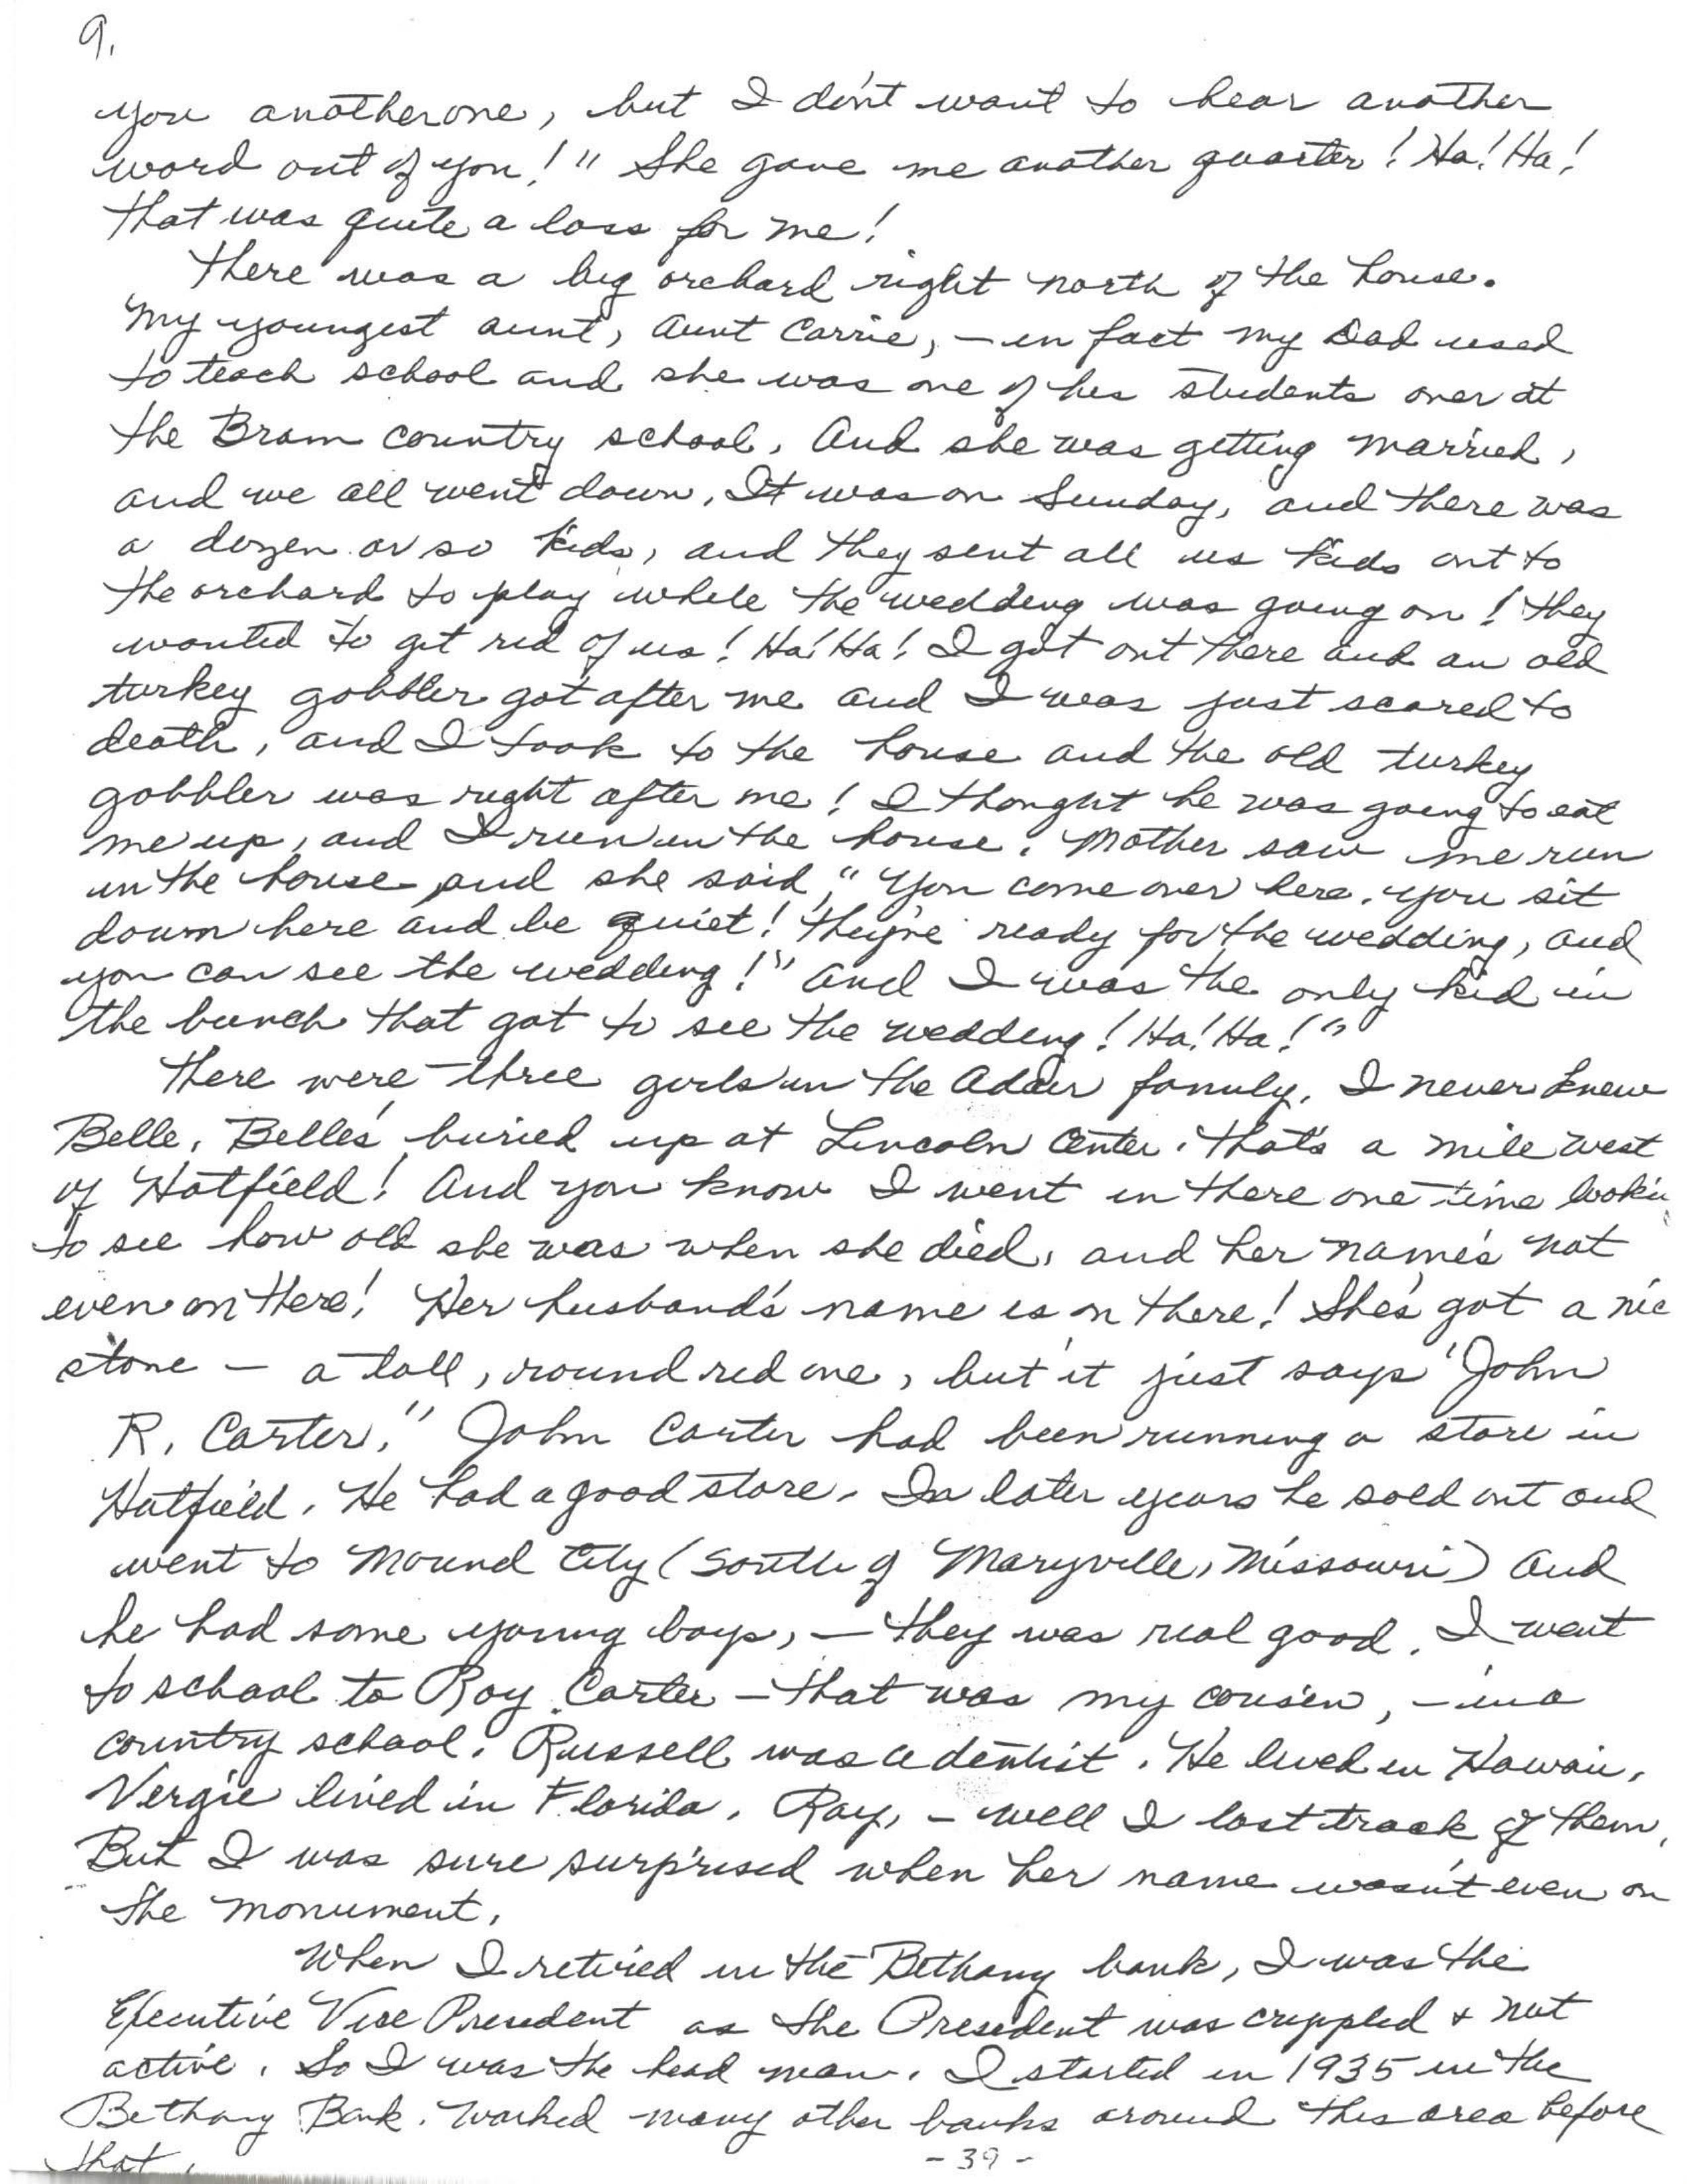 9.
you another one, but I don't want to hear another
word out of you!" She gave me another quarter! Ha! Ha!
That was quite a loss for me!
There was a big orchard right north of the house.
My youngest aunt, Aunt Carrie, – in fact my Dad used
to teach school and she was one of his students over at
the Bram country school. And she was getting married,
and we all went down. It was on Sunday, and there was
a dozen or so kids, and they sent all us kids out to
the orchard to play while the wedding was going on! They
wanted to get rid of us! Ha! Ha! I got out there and an old
turkey gobbler got after me and I was just scared to
death, and I took to the house and the old turkey
gobbler was right after me! I thought he was going to eat
me up, and I run in the house. Mother saw me run
in the house and she said, "You come over here. You sit
down here and be quiet! They're ready for the wedding, and
you can see the wedding!" And I was the only kid in
the bunch that got to see the wedding! Ha! Ha!"
There were three girls in the Adair family. I never knew
Belle. Belle's buried up at Lincoln Center. That's a mile west
of Hatfield! And you know I went in there one time lookin
to see how old she was when she died, and her name's not
even on there! Her husband's name is on there! She's got a nic
stone – a tall, round red one, but it just says "John
R. Carter." John Carter had been running a store in
Hatfield. He had a good store. In later years he sold out and
went to Mound City (South of Maryville, Missouri) and
he had some young boys, – they was real good. I went
to school to Roy Carter – that was my cousin, – in a
country school. Russell was a dentist. He lived in Hawaii.
Vergie lived in Florida. Ray, – well I lost track of them.
But I was sure surprised when her name wasn't even on
the monument.
When I retired in the Bethany bank, I was the
Executive Vice President as the President was crippled & not
active. So I was the head man. I started in 1935 in the
Bethany Bank. Worked many other banks around this area before
that.
- 39 -